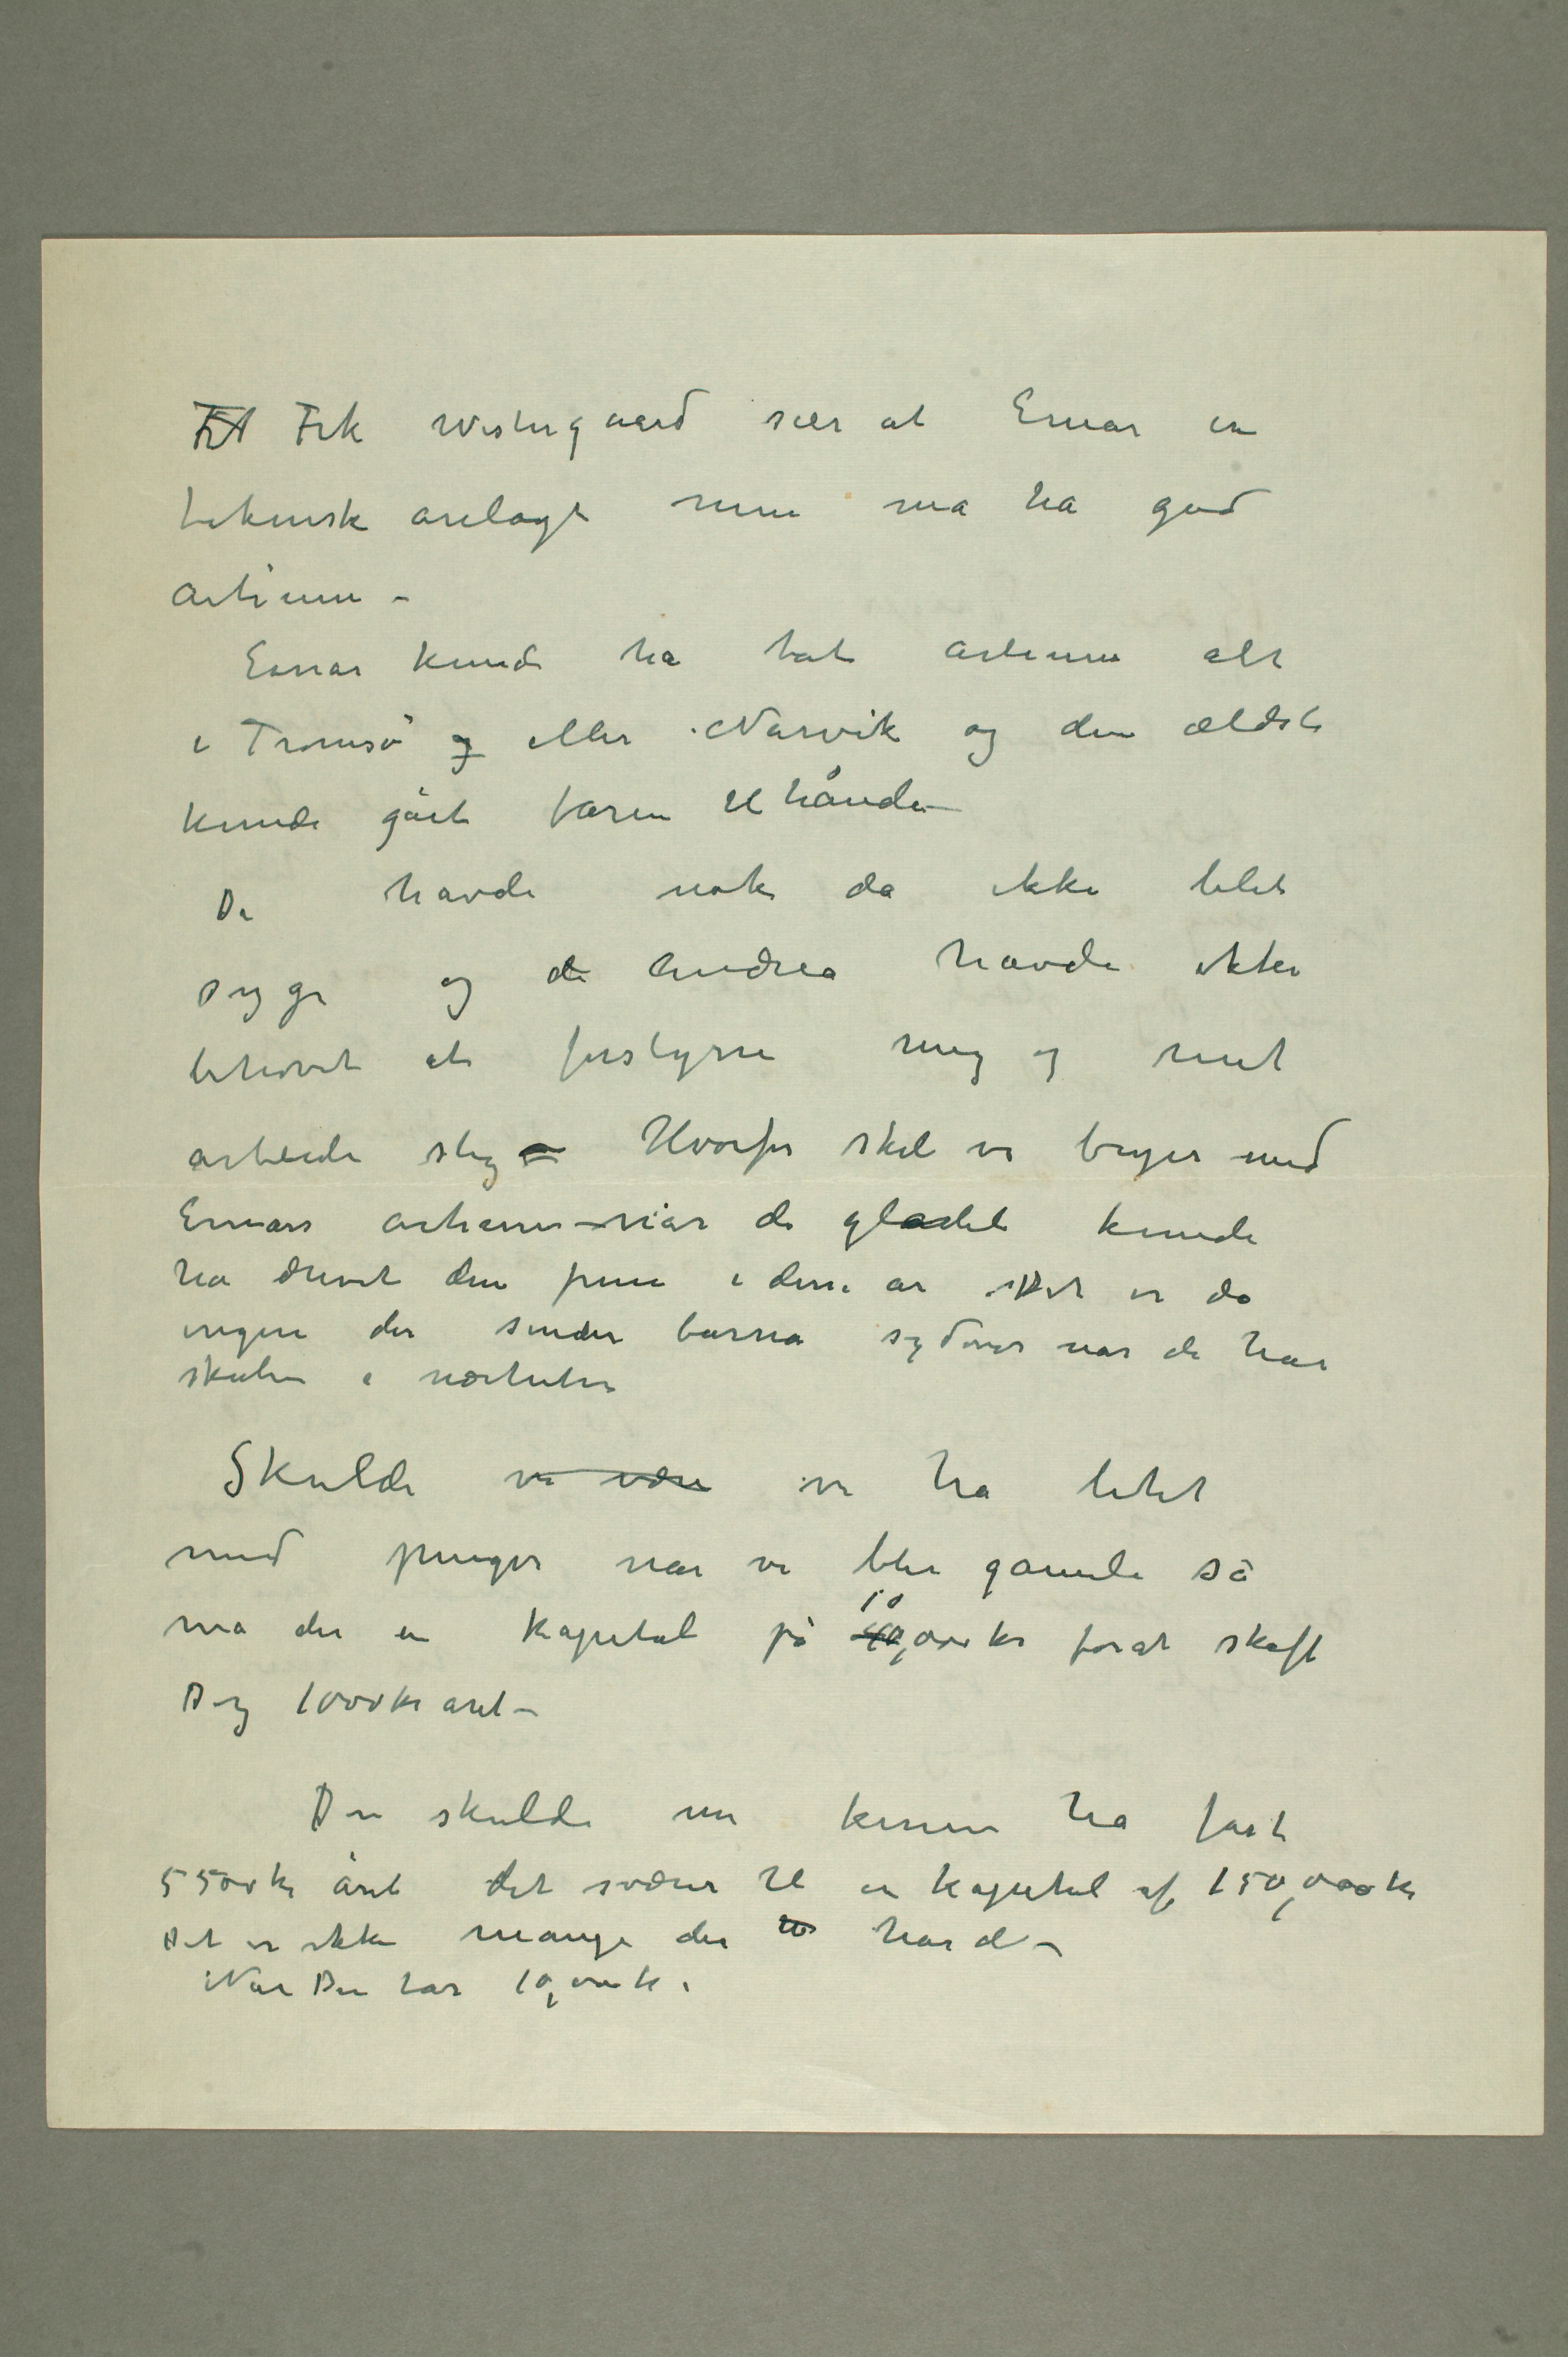 Frk Westergaard sier at Einar er
teknisk anlagt men må ha god
artium –
Einar kunde ha tat artium alt
i Tromsö og eller Narvik og den ældste
kunde gåt faren til hånde –
De havde nok da ikke blet
syge og de andre havde ikke
behøvet at forstyrre meg og mit
arbeide slig – Hvorfor skal vi bryes med
Einars artium – når de gladelig kunde
ha drevet den frem i disse år Det er da
ingen der sender barna sydover når de har
skolen i nærheten
Skulde vi være vi ha lidet
med penger når vi blir gamle så
må der en kapital på 10,000 kr forat skaffe
Dig 1000 kr året –
Du skulde nu kunne ha fåt
5500 kr året det svarer til en kapital af 150,000 kr
Det er ikke mange der har det –
Når Du har 10,000 kr